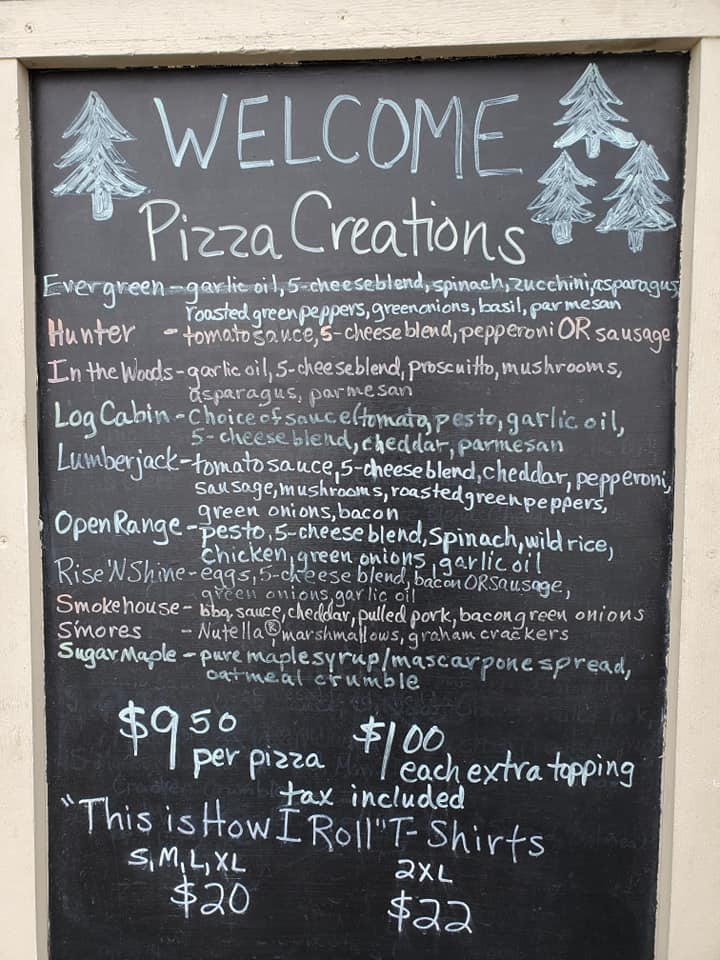 WELCOME
Pizza Creations
Evergreen - garlic oil, 5-cheese blend, spinach, zucchini, asparagus,
roasted green peppers, green onions, basil, parmesan
Hunter - tomato sauce, 5-cheese blend, pepperoni OR sausage
In the Woods - garlic oil, 5-cheese blend, proscuitto, mushrooms,
asparagus, parmesan
Log Cabin - Choice of sauce (tomato, pesto, garlic oil,
5-cheese blend, cheddar, parmesan
Lumberjack - tomato sauce, 5-cheese blend, cheddar, pepperoni,
sausage, mushrooms, roasted green peppers,
green onions, bacon
Open Range - pesto, 5-cheese blend, spinach, wild rice,
chicken, green onions, garlic oil
Rise 'N Shine - eggs, 5-cheese blend, bacon OR sausage,
green onions, garlic oil
Smokehouse - bbq sauce, cheddar, pulled pork, bacon green onions
S'mores - Nutella®, marshmallows, graham crackers
Sugar Maple - pure maple syrup/mascarpone spread,
oatmeal crumble
$9 50 $1 00
per pizza each extra topping
tax included
"This is How I Roll" T-Shirts
S, M, L, XL 2XL
$20 $22